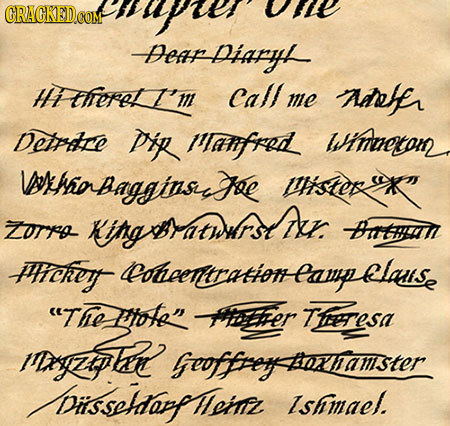 CRACKED.COM
Chapter One
Dear Diary!
Hi there! I'm Call me Adolf
Deirdre Pip Manfred Winnetou
Bilbo Baggins Joe Mister "X"
Zorro King Bratwurst Mr. Batman
Mickey Concentration Camp Claus
"The Mole" Mother Theresa
Mxyztplkn Geoffrey Boxhamster
Düsseldorf Heinz Ishmael.